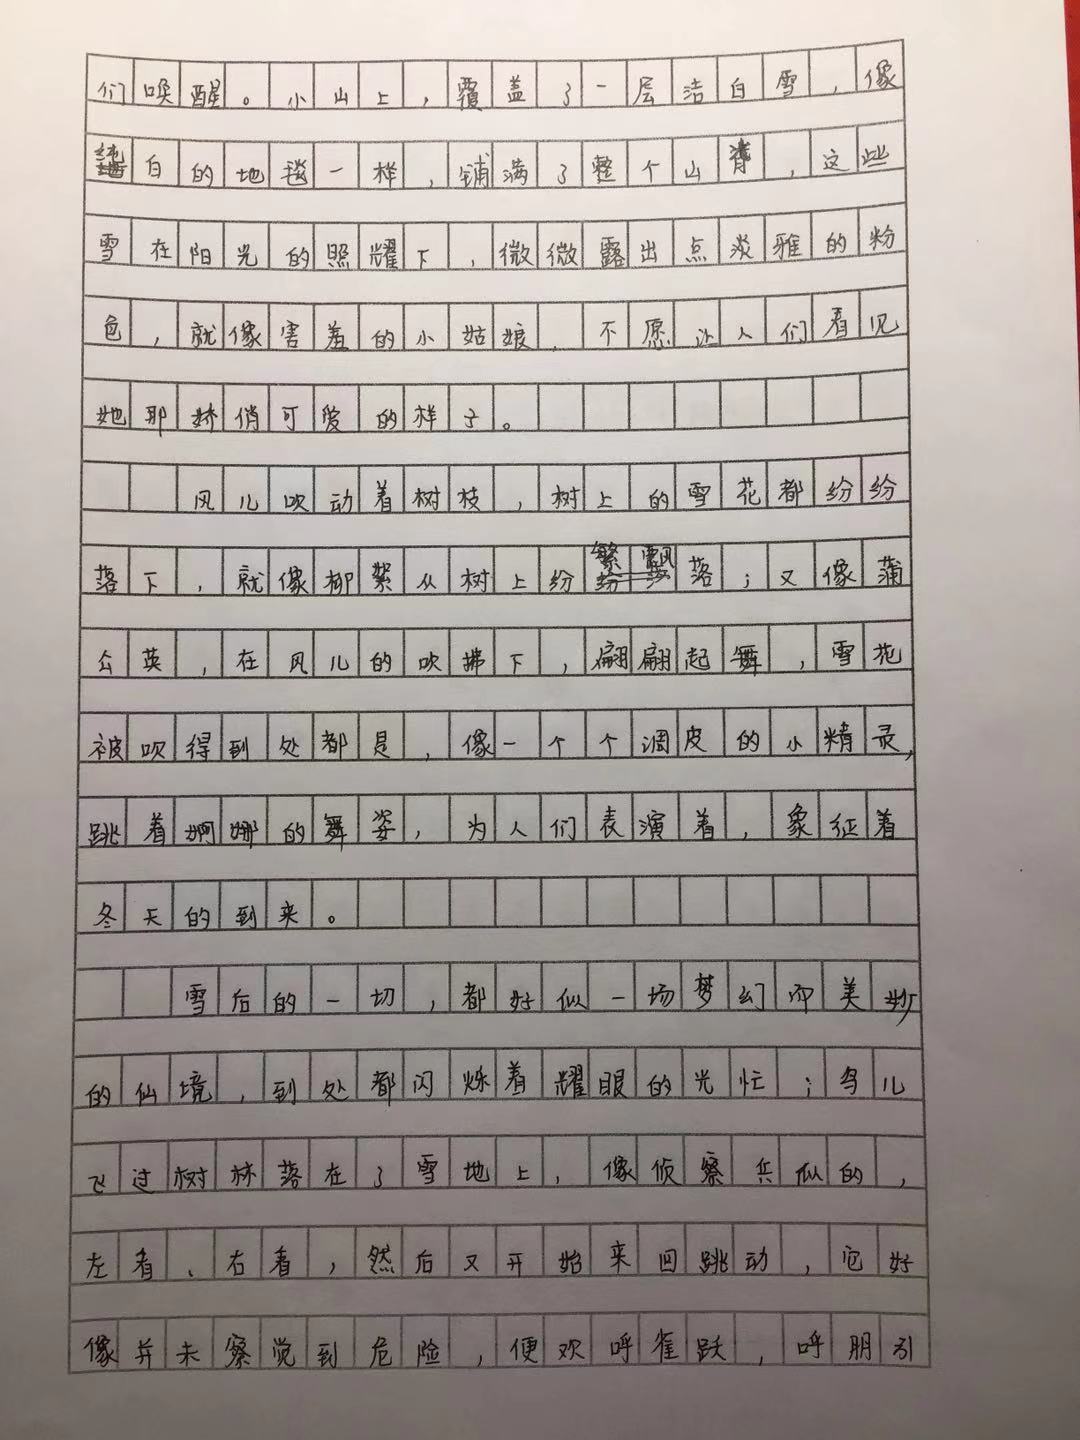 们唤醒。小山上，覆盖了一层洁白雪，像
纯白的地毯一样，铺满了整个山脊，这些
雪在阳光的照耀下，微微露出点淡雅的粉
色，就像害羞的小姑娘，不愿让人们看见
她那娇俏可爱的样子。
风儿吹动着树枝，树上的雪花都纷纷
落下，就像柳絮从树上纷繁飘落；又像蒲
公英，在风儿的吹拂下，翩翩起舞，雪花
被吹得到处都是，像一个个调皮的小精灵，
跳着婀娜的舞姿，为人们表演着，象征着
冬天的到来。
雪后的一切，都好似一场梦幻而美妙
的仙境，到处都闪烁着耀眼的光忙；鸟儿
飞过树林落在了雪地上，像侦察兵似的，
左看、右看，然后又开始来回跳动，它好
像并未察觉到危险，便欢呼雀跃，呼朋引